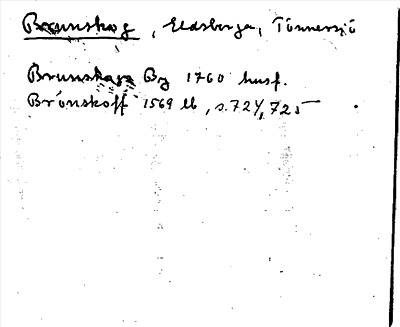 Brunskog, Eldsberga, Tönnersjö
Brunskogs By 1760 husf.
Brönskoff 1569 lb, s. 724, 725